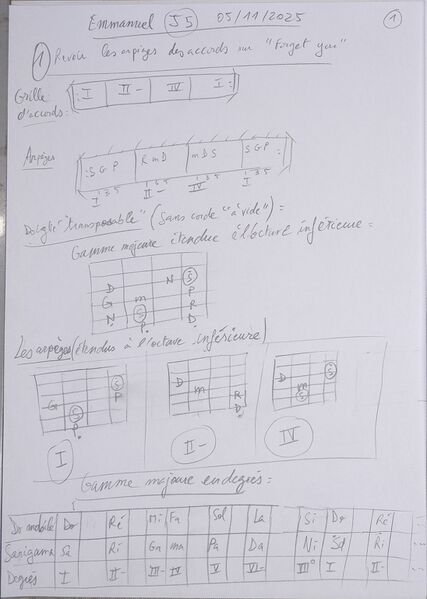 Emmanuel J5 05/11/2025 1
1 Revoir les arpèges des accords sur "Forget you"
Grille d'accords: I II- IV I
Arpèges S G P R m D m D S S G P
1 3 5 1 3 5 1 3 5 1 3 5
I II- IV I
Doigté "transposable" (Sans corde "à vide") =
Gamme majeure étendue à l'octave inférieure =
D N S
G m P
N S R
P D
Les arpèges (étendus à l'octave inférieure)
G S P S P
D m R D
D m S S
I II- IV
Gamme majeure en degrés =
Do mobile Do Ré Mi Fa Sol La Si Do Ré
Sarigama Sa Ri Ga ma Pa Da Ni Sa Ri
Degrés I II- III- IV V VI- VII° I II-